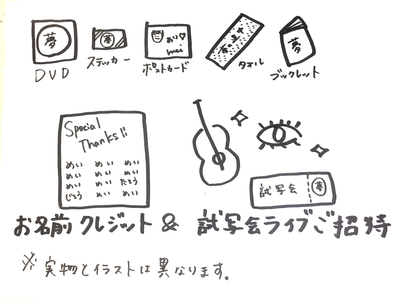 夢 夢 夢
DVD ステッカー ポストカード タオル ブックレット
Special
Thanks!!
めい めい めい
めい めい めい
めい めい たろう
じろう めい めい
試写会 夢
お名前クレジット & 試写会ライブご招待
※実物とイラストは異なります。